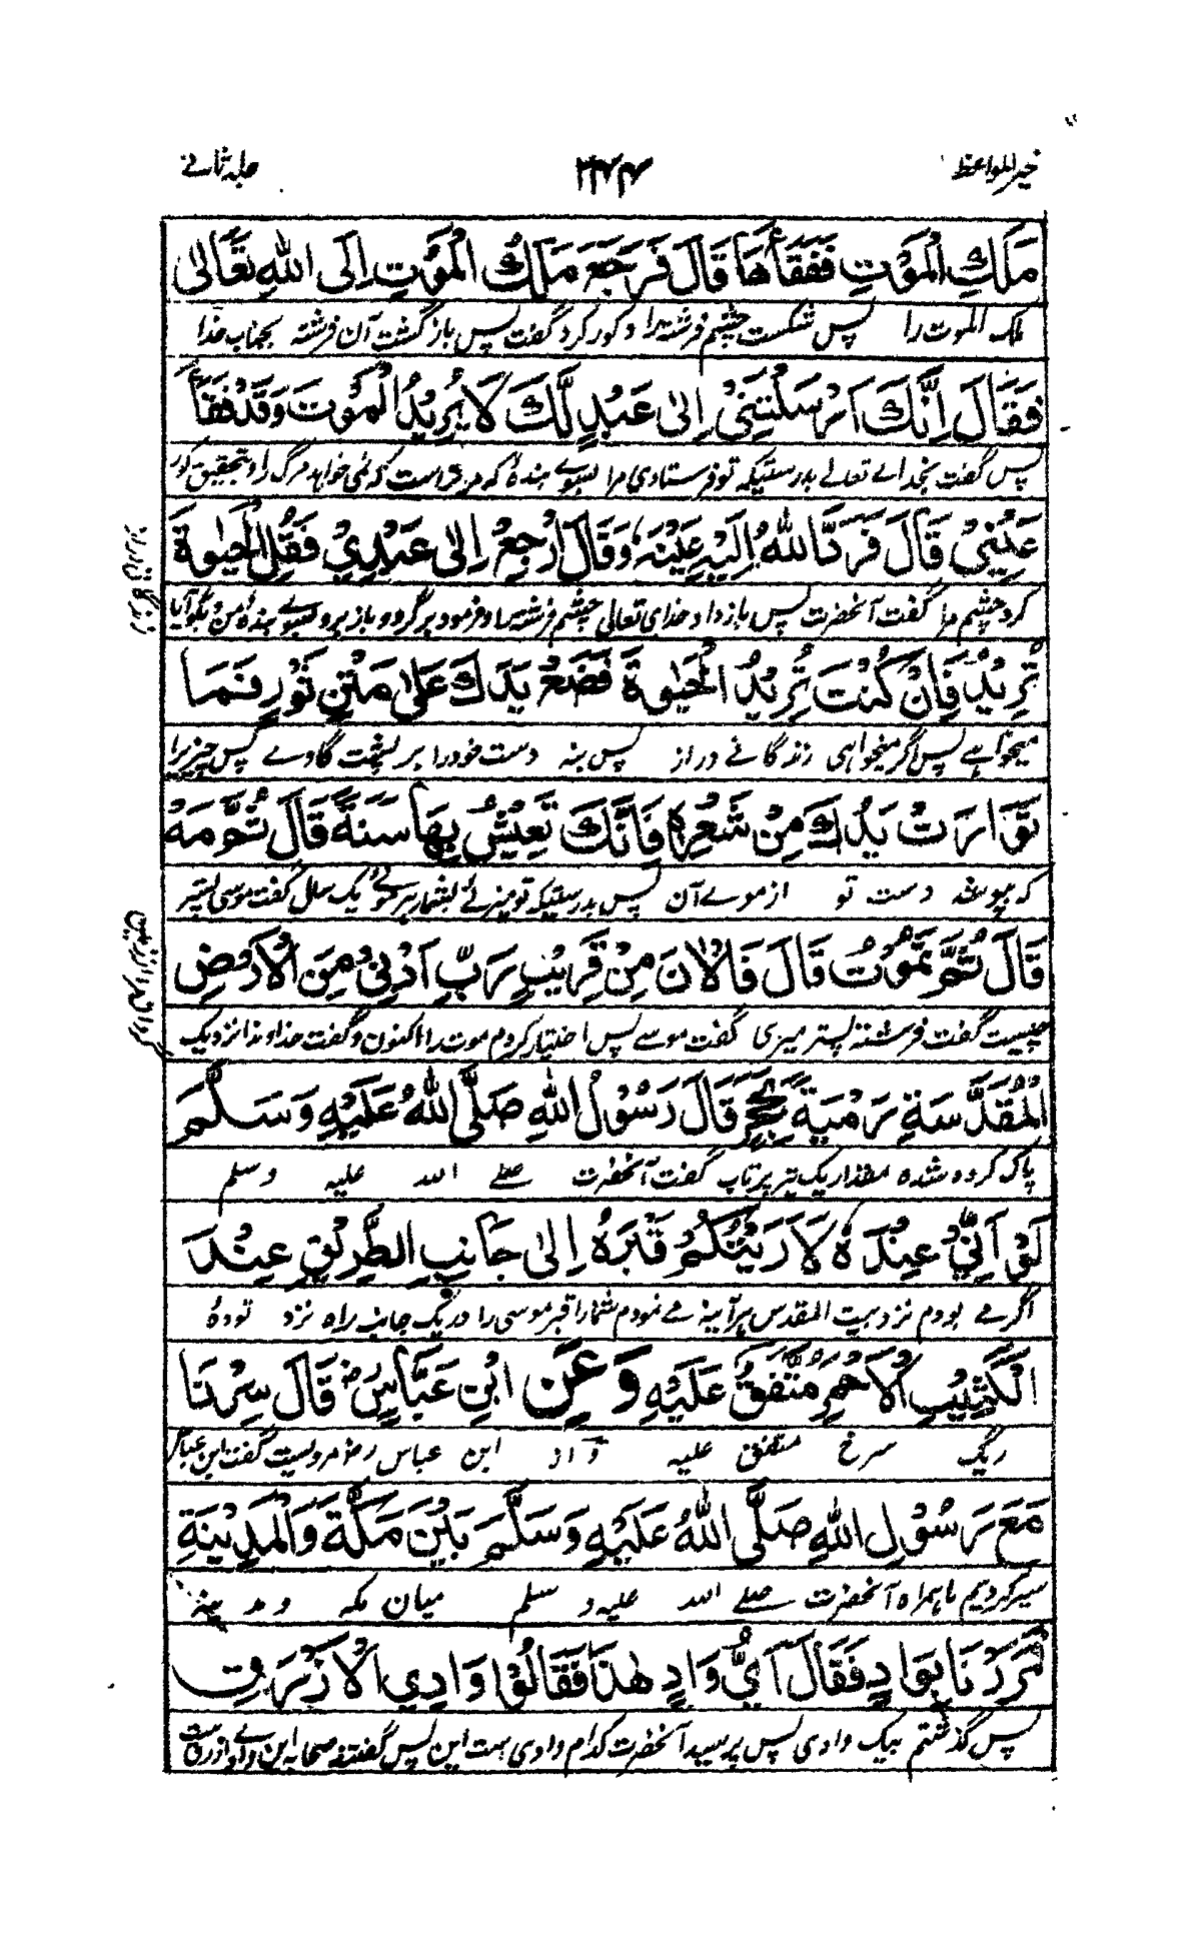 خیر المواعظ
جلد ثانے
مَلَكِ الْمَوْتِ فَفَقَأَهَا قَالَ فَرَجَعَ مَلَكُ الْمَوْتِ اِلَى اللهِ تَعَالٰى
ملک الموت را پس شکست چشم فرشته را و کور کرد گفت پس باز گشت آن فرشته بجناب خدا
فَقَالَ اِنَّكَ اَرْسَلْتَنِيْ اِلٰى عَبْدٍ لَّكَ لَا يُرِيْدُ الْمَوْتَ وَقَدْ فَقَأَ
پس گفت بخداے تعالے بدرستیکه تو فرستادی مرا بسوے بندهٔ که مر تراست که نمی خواهد مرگ را و بتحقیق کور
عَيْنِيْ قَالَ فَرَدَّ اللهُ اِلَيْهِ عَيْنَهٗ وَقَالَ ارْجِعْ اِلٰى عَبْدِيْ فَقُلِ الْحَيٰوةَ
کرد چشم مرا گفت آنحضرت پس باز داد خدای تعالی چشم فرشته را و فرمود برگرد و باز برو بسوے بندهٔ من بگو آیا
تُرِيْدُ فَاِنْ كُنْتَ تُرِيْدُ الْحَيٰوةَ فَضَعْ يَدَكَ عَلٰى مَتْنِ ثَوْرٍ فَمَا
میخواهے پس اگر میخواهی زندگانے دراز پس بنه دست خود را بر پشت گاوے پس چیزیرا
تَوَارَتْ يَدُكَ مِنْ شَعْرِهٖ فَاِنَّكَ تَعِيْشُ بِهَا سَنَةً قَالَ ثُمَّ مَهْ
که پوشد دست تو از موے آن پس بدرستیکه تو میزئے بشمار هر موے یک سال گفت موسی پستر
قَالَ ثُمَّ تَمُوْتُ قَالَ فَالْاٰنَ مِنْ قَرِيْبٍ رَبِّ اَدْنِنِيْ مِنَ الْاَرْضِ
چیست گفت فرشته پستر میری گفت موسے پس اختیار کردم موت را اکنون و گفت خداوندا نزدیک
الْمُقَدَّسَةِ رَمْيَةً بِحَجَرٍ قَالَ رَسُوْلُ اللهِ صَلَّى اللهُ عَلَيْهِ وَسَلَّمَ
پاک کرده شده مقدار یک تیر پرتاب گفت آنحضرت صلے الله علیه وسلم
لَوْ اَنِّيْ عِنْدَهٗ لَاَرَيْتُكُمْ قَبْرَهٗ اِلٰى جَانِبِ الطَّرِيْقِ عِنْدَ
اگر مے بودم نزد بیت المقدس هرآینه مے نمودم شما را قبر موسی را در یک جانب راه نزد تودهٔ
الْكَثِيْبِ الْاَحْمَرِ مُتَّفَقٌ عَلَيْهِ وَعَنِ ابْنِ عَبَّاسٍ رض قَالَ سِرْنَا
ریگ سرخ متفق علیه و از ابن عباس رض مرویست گفت ابن عباس
مَعَ رَسُوْلِ اللهِ صَلَّى اللهُ عَلَيْهِ وَسَلَّمَ بَيْنَ مَكَّةَ وَالْمَدِيْنَةِ
سیر کردیم ما همراه آنحضرت صلے الله علیه و سلم میان مکه و مدینه
فَمَرَرْنَا بِوَادٍ فَقَالَ اَيُّ وَادٍ هٰذَا فَقَالُوْا وَادِي الْاَزْرَقِ
پس گذشتم بیک وادی پس پرسید آنحضرت کدام وادی هست این پس گفتند صحابه این وادے ازرق ست